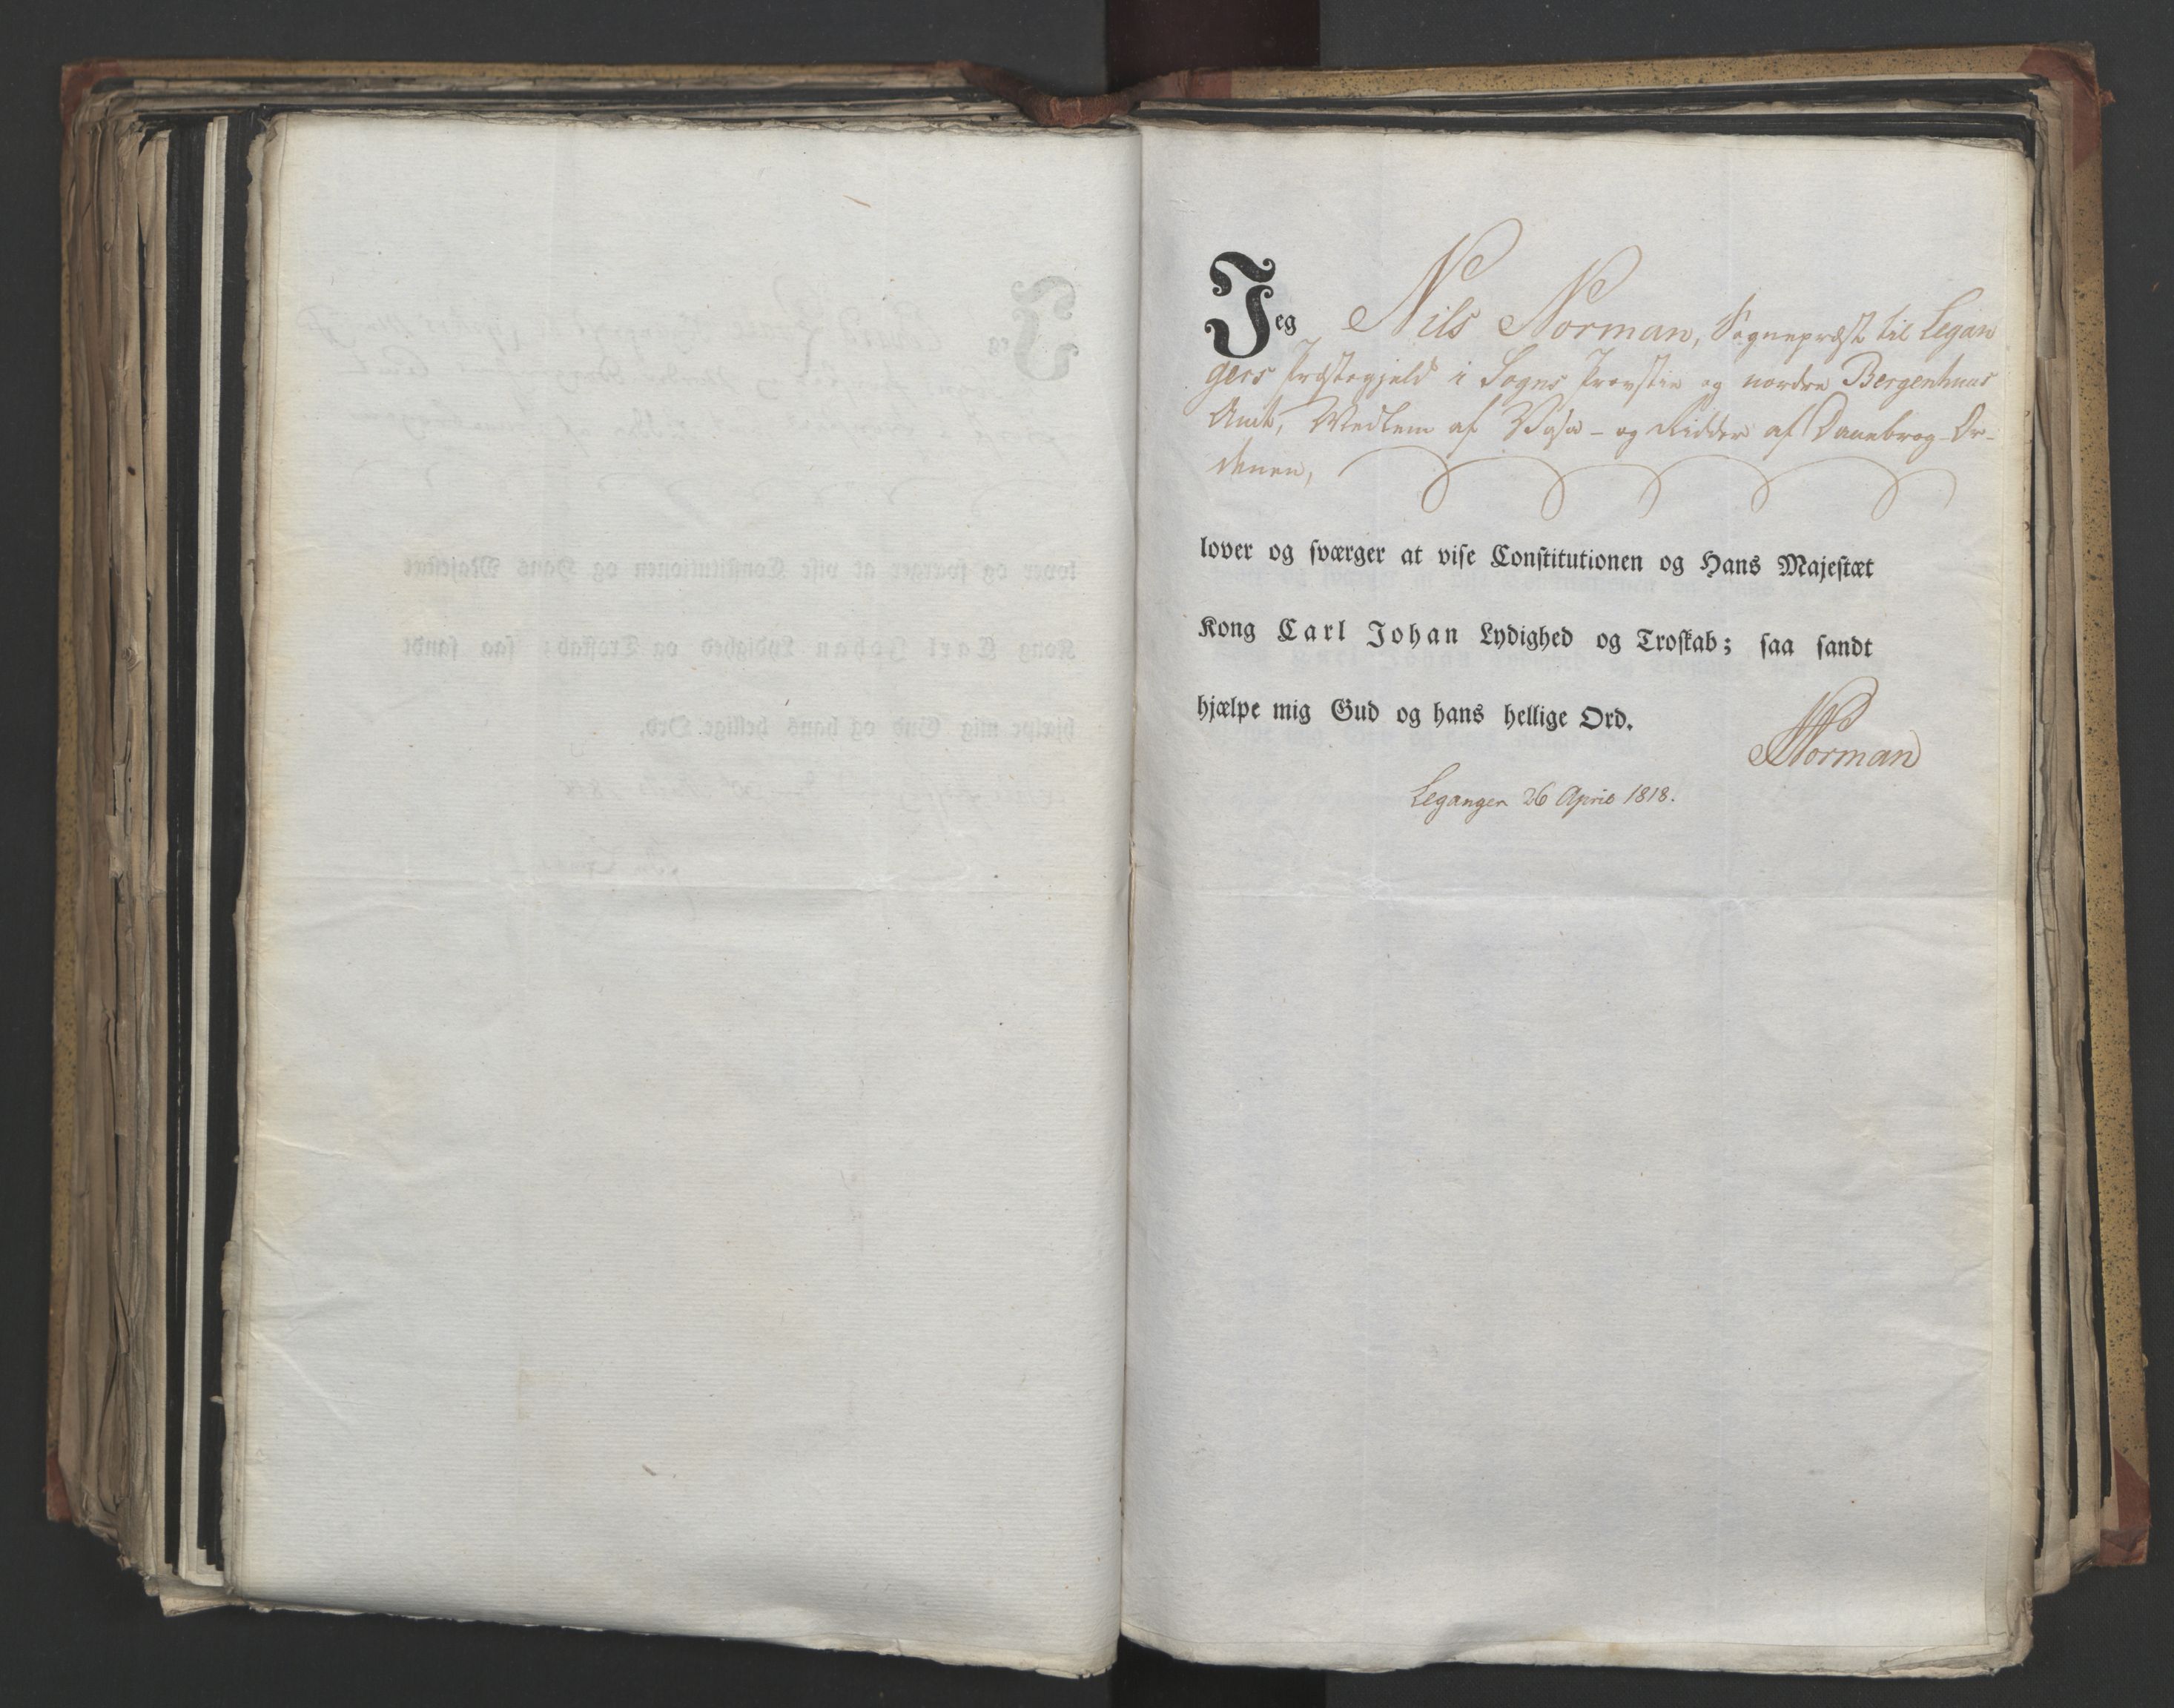 Jeg Nils Norman, Sognepræst til Legan
gers Præstegjeld i Sogns Provstie og nordre Bergenhuus
Amt, Medlem af Vasa- og Ridder af Dannebrog-Or-
denen,
lover og sværger at vise Constitutionen og Hans Majestæt
Kong Carl Johan Lydighed og Troskab; saa sandt
hjælpe mig Gud og hans hellige Ord.
NNorman
Leganger 26 April 1818.